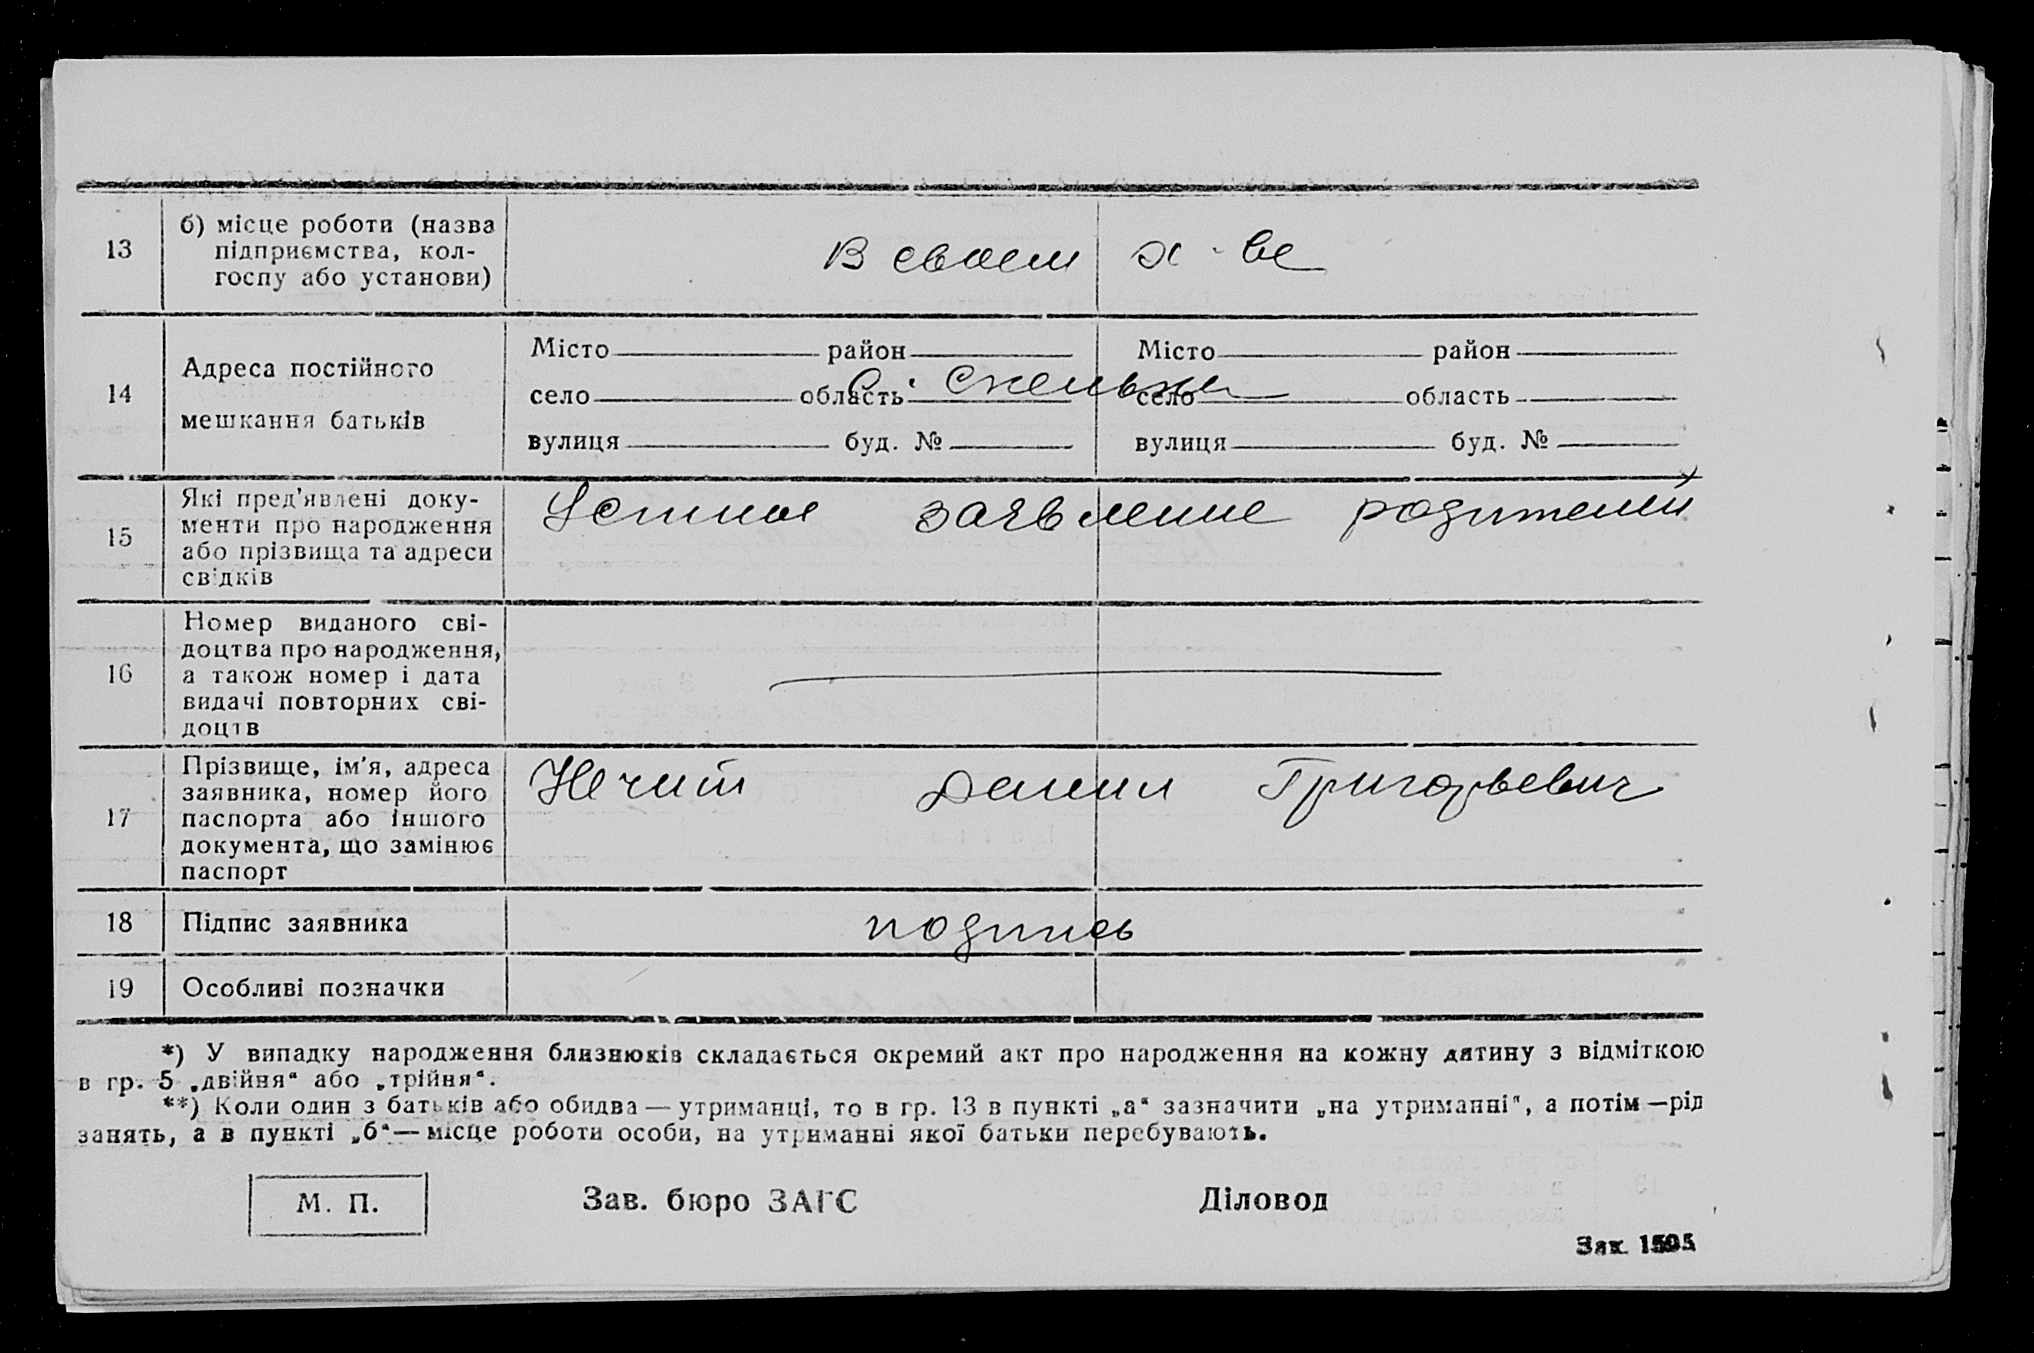 13
б) місце роботи (назва
підприємства, кол-
госпу або установи)
В своем х-ве
14
Адреса постійного
мешкання батьків
Місто район
село область
вулиця буд. №
Місто район
село область
вулиця буд. №
с.
15
Які пред'явлені доку-
менти про народження
або прізвища та адреси
свідків
Устное заявление родителей
16
Номер виданого сві-
доцтва про народження,
а також номер і дата
видачі повторних сві-
доцтв
17
Прізвище, ім'я, адреса
заявника, номер його
паспорта або іншого
документа, що замінює
паспорт
Нечит Данил Григорьевич
18
Підпис заявника
подпись
19
Особливі позначки
*) У випадку народження близнюків складається окремий акт про народження на кожну дитину з відміткою
в гр. 5 „двійня“ або „трійня“.
**) Коли один з батьків або обидва — утриманці, то в гр. 13 в пункті „а“ зазначити „на утриманні“, а потім — рід
занять, а в пункті „б“ — місце роботи особи, на утриманні якої батьки перебувають.
М. П.
Зав. бюро ЗАГС
Діловод
Зак.